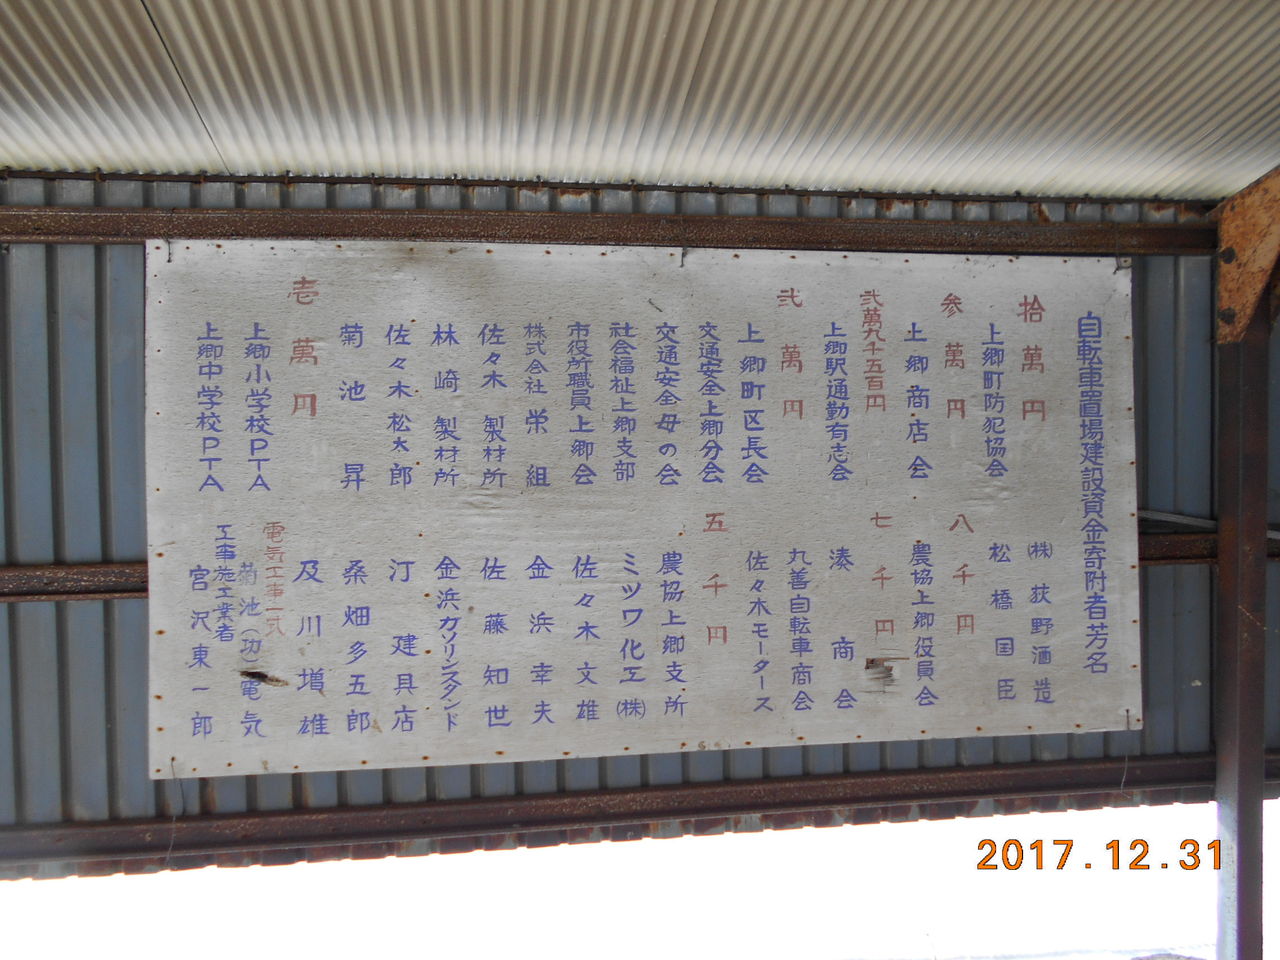 自転車置場建設資金寄附者芳名
拾萬円
上郷町防犯協会
参萬円
上郷商店会
弐萬九千五百円
上郷駅通勤有志会
弐萬円
上郷町区長会
交通安全上郷分会
交通安全母の会
社会福祉上郷支部
市役所職員上郷会
株式会社栄組
佐々木製材所
林崎製材所
佐々木松太郎
菊池昇
壱萬円
上郷小学校PTA
上郷中学校PTA
(株)荻野酒造
松橋国臣
八千円
農協上郷役員会
七千円
湊商会
丸善自転車商会
佐々木モータース
五千円
農協上郷支所
ミツワ化工(株)
佐々木文雄
金浜幸夫
佐藤知世
金浜ガソリンスタンド
汀建具店
桑畑多五郎
及川増雄
電気工事一式
菊池(功)電気
工事施工業者
宮沢東一郎
2017.12.31